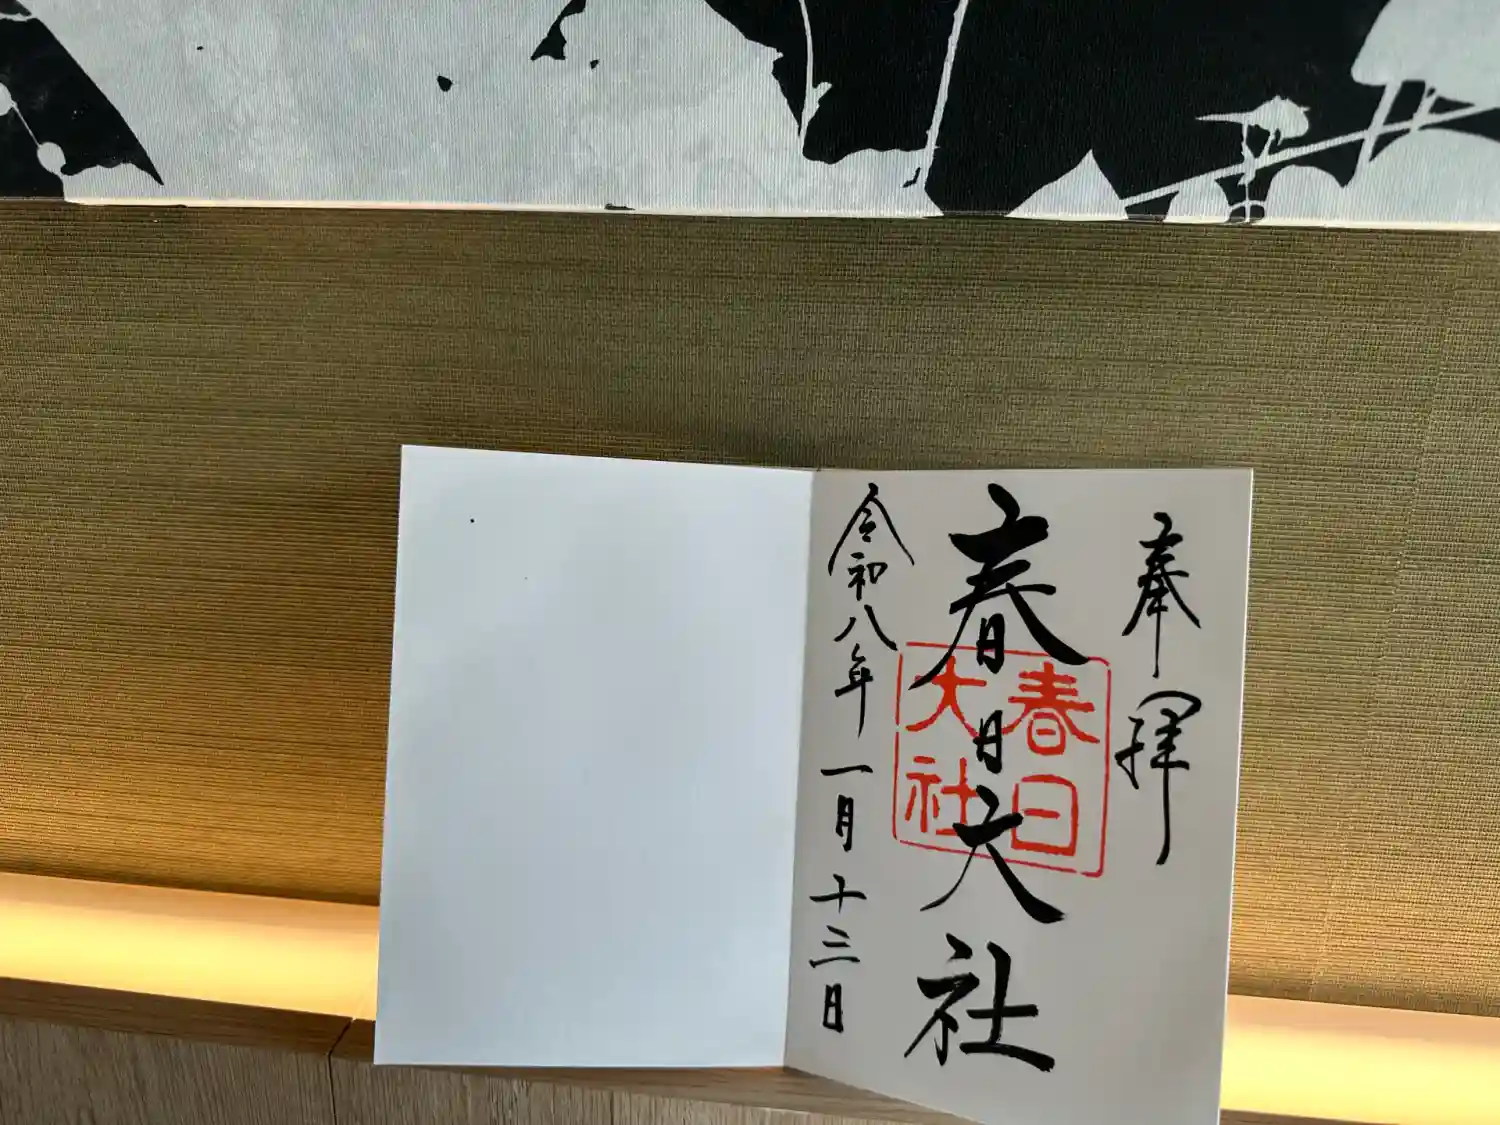 奉拝
春日大社
春日
大社
令和八年一月十三日